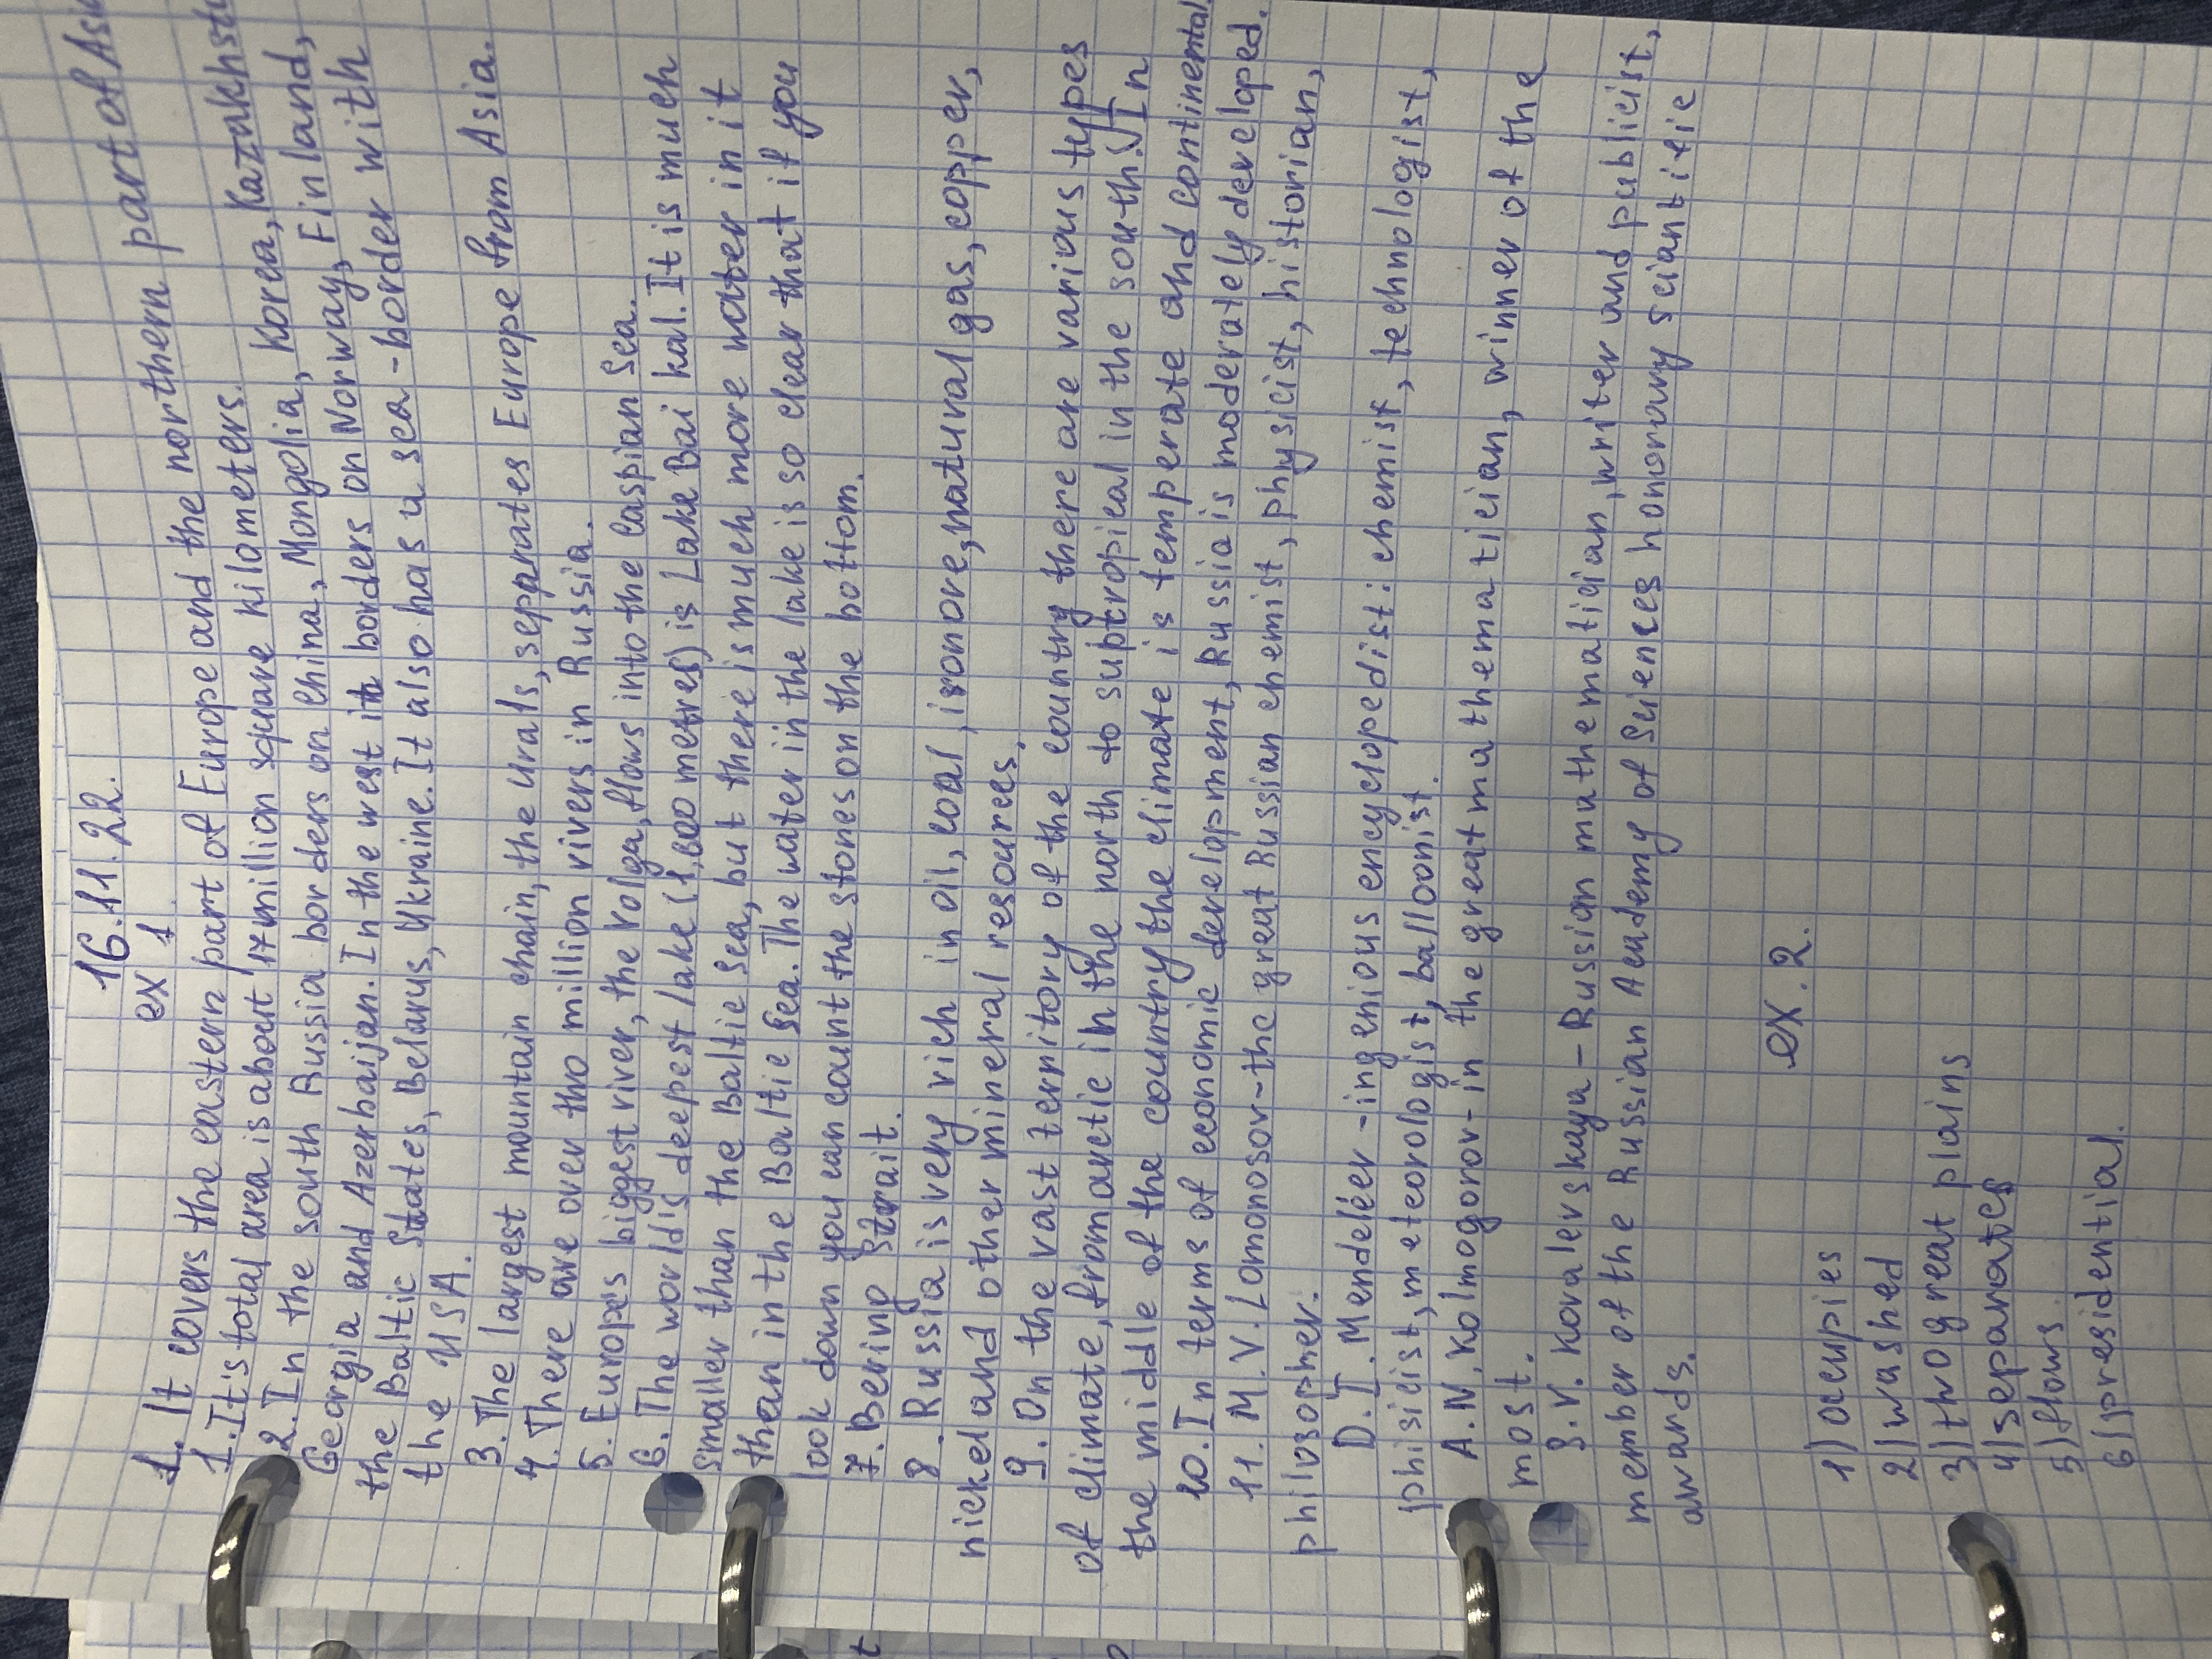 16.11.22.
ex 1
1. It covers the eastern part of Europe and the northern part of
1. It's total area is about 17 million square kilometers.
2. In the south Russia borders on China, Mongolia, Korea,
Georgia and Azerbaijan. In the west it borders on Norway, Finland,
the Baltic States, Belarus, Ukraine. It also has a sea-border with
the USA.
3. The largest mountain chain, the Urals, separates Europe from Asia.
4. There are over two million rivers in Russia.
5. Europe's biggest river, the Volga, flows into the Caspian Sea.
6. The world's deepest lake (1,600 metres) is Lake Baikal. It is much
smaller than the Baltic Sea, but there is much more water in it
than in the Baltic Sea. The water in the lake is so clear that if you
look down you can count the stones on the bottom.
7. Bering Strait.
8. Russia is very rich in oil, coal, iron ore, natural gas, copper,
nickel and other mineral resources.
9. On the vast territory of the country there are various types
of climate, from arctic in the north to subtropical in the south. In
the middle of the country the climate is temperate and continental.
10. In terms of economic development, Russia is moderately developed.
11. M.V. Lomonosov - the great Russian chemist, physicist, historian,
philosopher.
D.I. Mendeléev - ingenious encyclopedist: chemist, technologist,
phisicist, meteorologist, balloonist.
A.N. Kolmogorov - in the great mathematician, winner of the
most.
S.V. Kovalevskaya - Russion mathematician, writer and publicist,
member of the Russian Academy of Sciences honorary sciantific
awards.
ex. 2.
1) occupies
2) washed
3) two great plains
4) separates
5) flows
6) presidential.